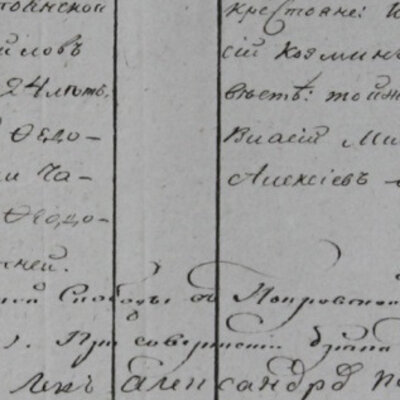 тоянской
йловъ
24 лѣтъ.
Ѳедо-
и Ча-
Ѳеодо-
ней.
крестьяне:
сій Козмин
вѣстѣ: той же
Власій Ми
Алексіевъ
ной Слободы въ Покровской
). При совершеніи брака
Лекъ Александръ По